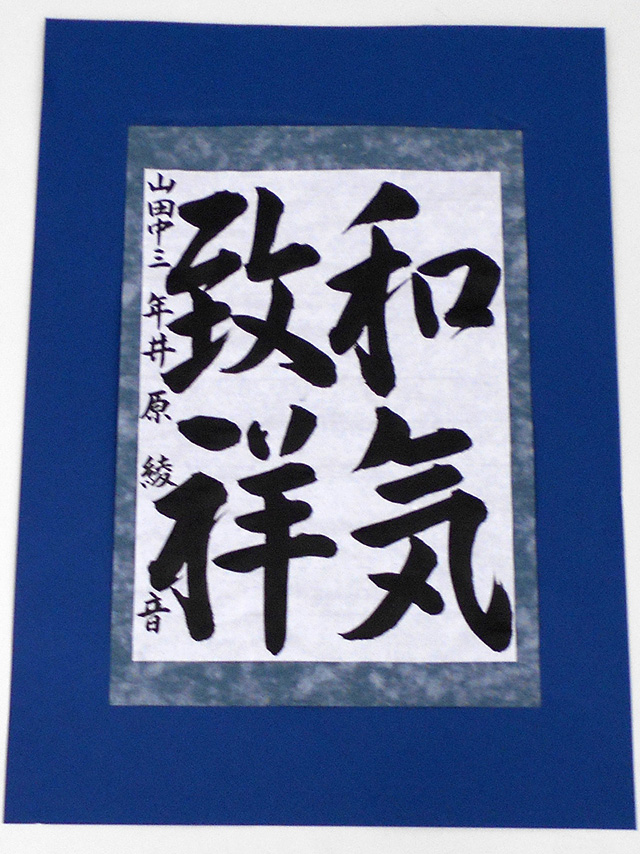 和気
致祥
山田中三年井原綾音